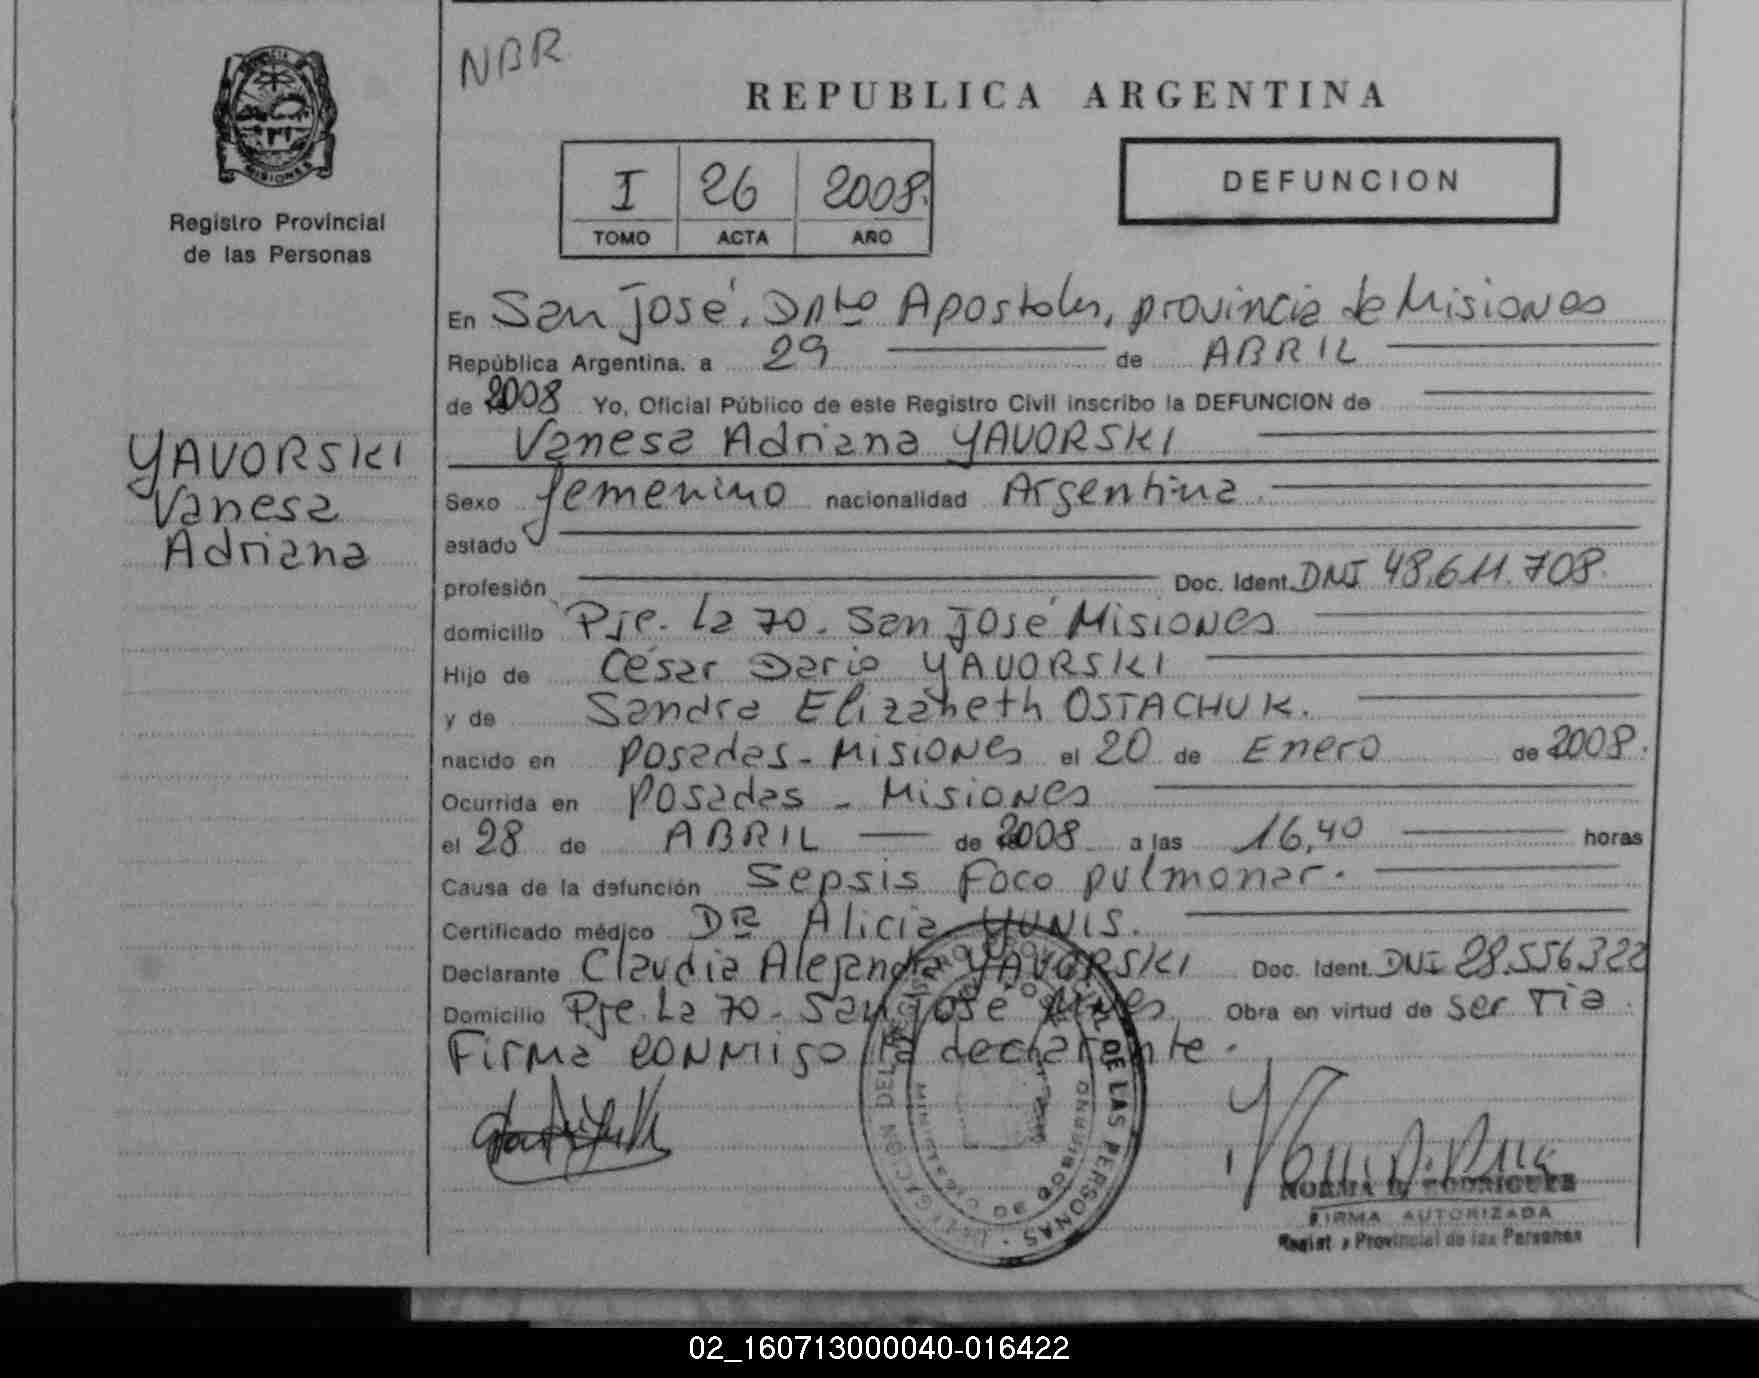 NBR
REPUBLICA ARGENTINA
MISIONES
Registro Provincial
de las Personas
I 26 2008.
TOMO ACTA AÑO
DEFUNCION
En San José, Dpto Apostoles, provincia de Misiones
República Argentina, a 29 de ABRIL
de 2008 Yo, Oficial Público de este Registro Civil inscribo la DEFUNCION de
Vanesa Adriana YAVORSKI
YAVORSKI
Vanesa
Adriana
Sexo femenino nacionalidad Argentina
estado
profesión Doc. Ident. DNI 48.611.708.
domicilio Pje. La 70. San José Misiones
Hijo de César Dario YAVORSKI
y de Sandra Elizabeth OSTACHUK.
nacido en Posadas - Misiones el 20 de Enero de 2008.
Ocurrida en Posadas - Misiones
el 28 de ABRIL de 2008 a las 16,40 horas
Causa de la defunción Sepsis Foco pulmonar.
Certificado médico DRa Alicia YUNIS.
Declarante Claudia Alejandra YAVORSKI Doc. Ident. DNI 28.556.322
Domicilio Pje. La 70 - San José Mnes. Obra en virtud de ser Tía.
Firma conmigo la declarante.
DE LAS PERSONAS
NORMA RODRIGUEZ
FIRMA AUTORIZADA
Regist Provincial de las Personas
02_160713000040-016422